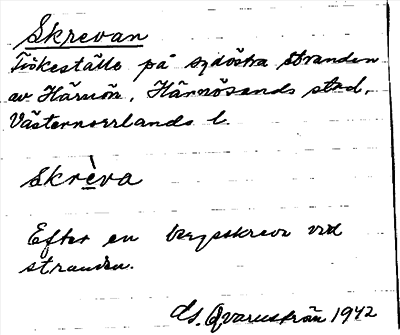 Skrevan
Fiskeställe på sydöstra stranden
av Härnön, Härnösands stad,
Västernorrlands l.
skrèva
Efter en bergsskreva vid
stranden.
ds. Qvarnström 1942